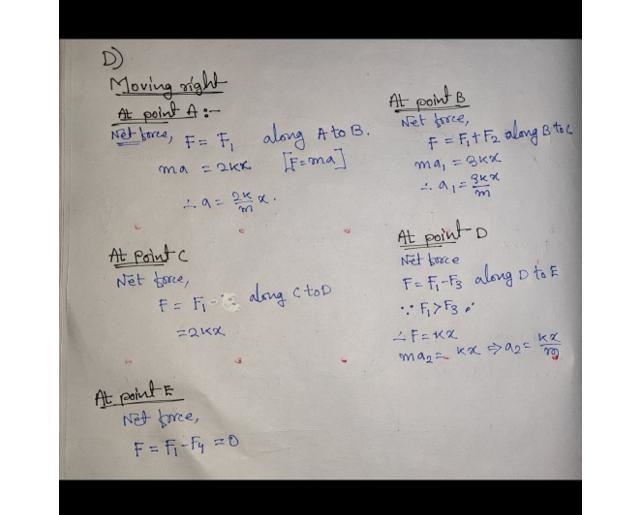 D)
Moving right
At point A :-
Net force, F = F₁ along A to B.
ma = 2kx [F=ma]
∴ a = 2k/m x.
At point B
Net force,
F = F₁ + F₂ along B to C
ma₁ = 3kx
∴ a₁ = 3kx/m
At point C
Net force,
F = F₁ - along C to D
= 2kx
At point D
Net force
F = F₁ - F₃ along D to E
∵ F₁ > F₃
∴ F = kx
ma₂ = kx ⇒ a₂ = kx/m
At point E
Net force,
F = F₁ - F₄ = 0